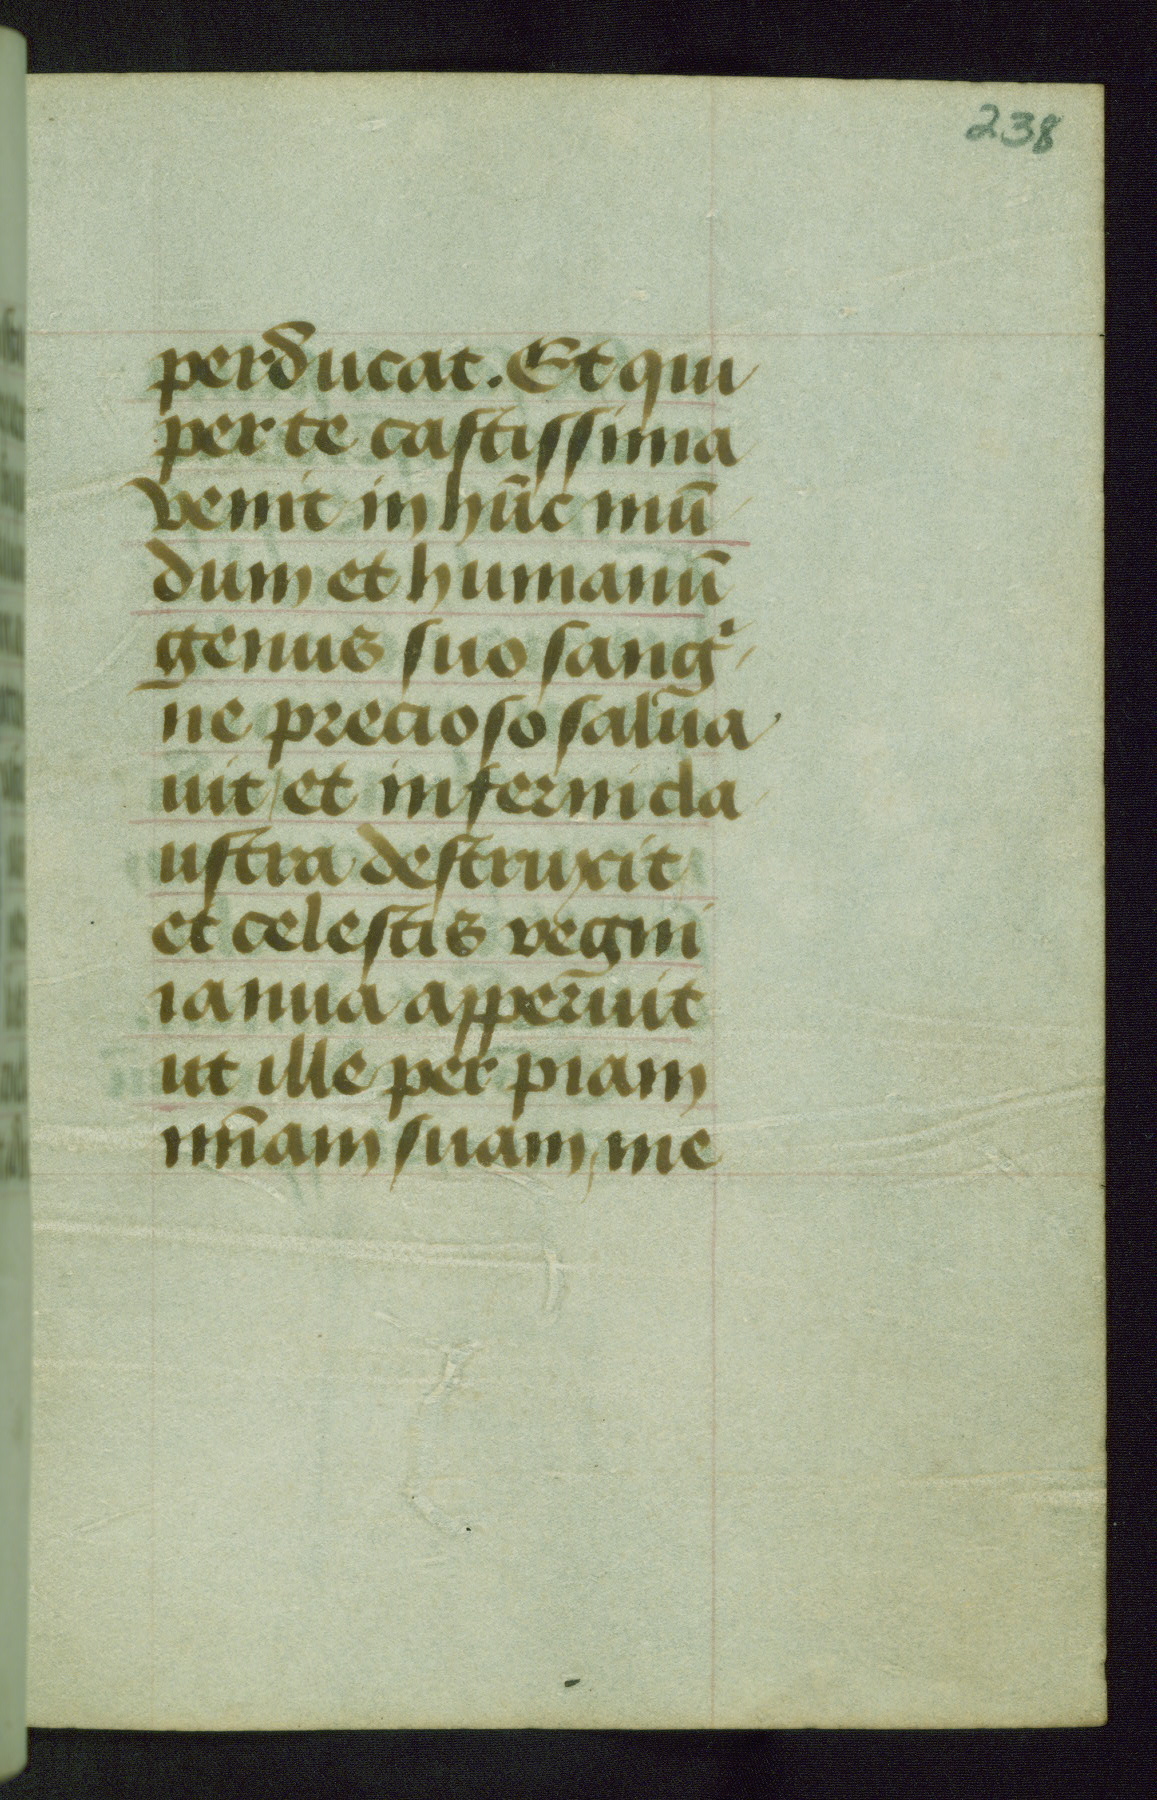 238
perducat. Et qui
per te castissima
venit in hūc mū
dum et humanū
genus suo sangⁱ
ne precioso salua
uit / et inferni cla
ustra destruxit
et celestis regni
ianua apperuit
ut ille per piam
mīam suam, me